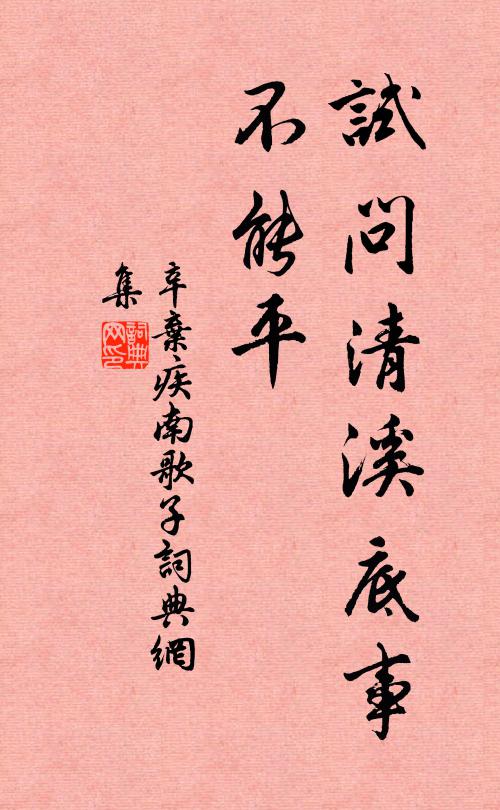 試問清溪底事
不能平
辛棄疾南歌子詞典網
集
詞典網印